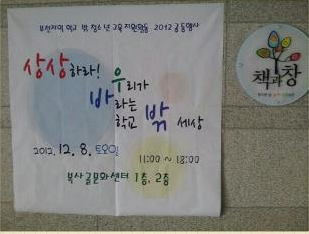 부천지역 학교 밖 청소년 교육지원활동 2012 공동행사
상상하라! 우리가
바라는
학교 밖 세상
2012. 12. 8. 토요일
11:00 ~ 18:00
복사골문화센터 1층, 2층
책과창